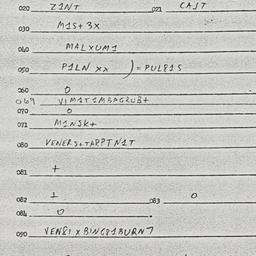 020 Z1NT 021 CAST
030 M1S+3X
040 MALXUM1
050 P1LN XX ) = PUL81S
060 0
069 VIM1T1MBAGRUB+
070 0
071 M1NSK+
080 VENERS+TARPTN1T
081 +
082 1 083 0
084 0 .
090 VEN81 X BINC81BURN7